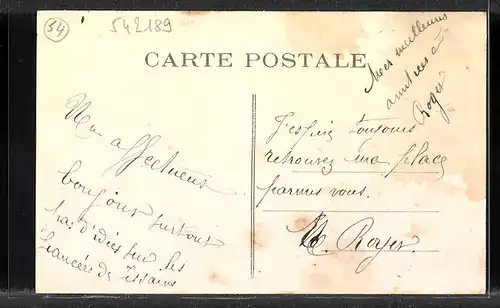 54
542189
CARTE POSTALE
Mes meilleurs
amitiés à
Roger
Un affectueux
bonjour surtout
pas d'idées sur les
fiancées de
J'espère toujours
retrouver ma place
parmis vous.
M. Roger.